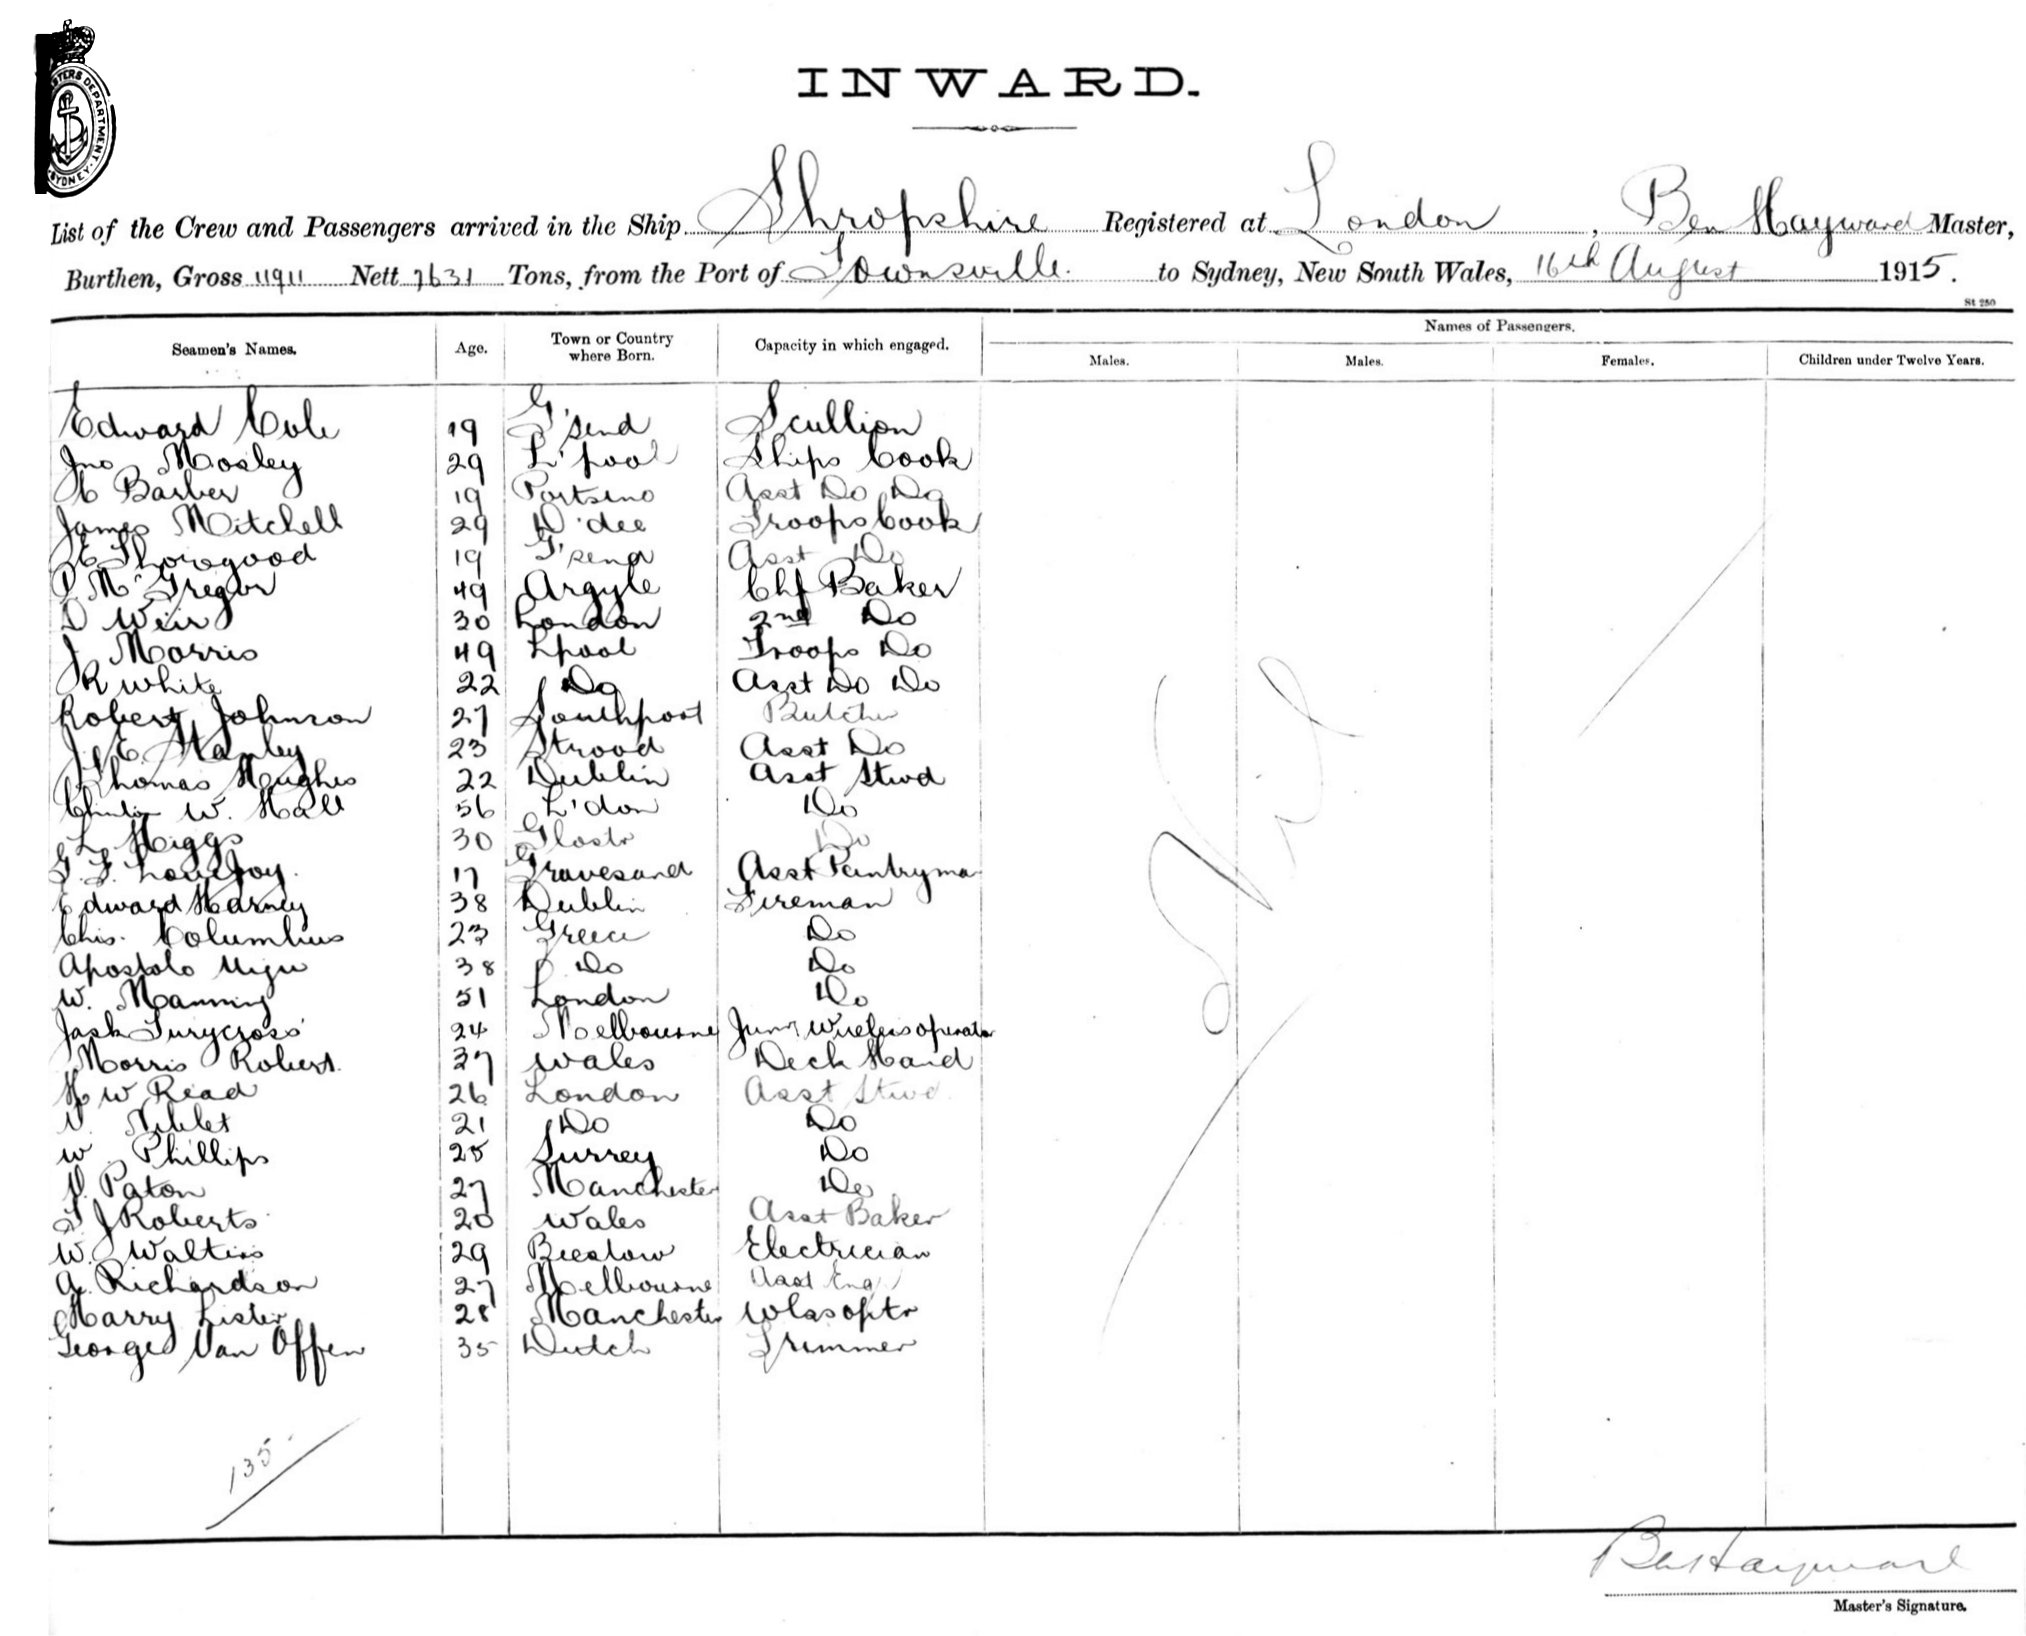 INWARD.
List of the Crew and Passengers arrived in the Ship Shropshire Registered at London, Ben Hayward Master,
Burthen, Gross 11911 Nett 7631 Tons, from the Port of Townsville. to Sydney, New South Wales, 16th August 1915.
St 250
Seamen's Names. Age. Town or Country where Born. Capacity in which engaged. Names of Passengers.
Males. Males. Females. Children under Twelve Years.
Edward Cole 19 G'send Scullion
Jno Mosley 29 L'pool Ships Cook
H Barber 19 Asst Do Do
James Mitchell 29 D'dee Troops Cook
Thorogood 19 G'send Asst Do
McGregor 49 Argyle Chf Baker
D Weir 30 London 2nd Do
J Morris 49 Lpool Troops Do
R White 22 Do Asst Do Do
Robert Johnson 27 Southport Butcher
J. E. Stanley 23 Strood Asst Do
Thomas Hughes 22 Dublin Asst Stwd
W. Hall 56 L'don Do
L Higgs 30 Glostr Do
Lovejoy. 17 Gravesend Asst Pantryman
Edward Harney 38 Dublin Fireman
Chis. Columbus 23 Greece Do
Apostolo 38 Do Do
W. Manning 51 London Do
Jack Turycross 24 Melbourne Junr Wireless operator
Morris Robert. 37 Wales Deck Hand
H W Read 26 London Asst Stwd
Niblet 21 Do Do
W Phillips 25 Surrey Do
Paton 27 Manchester Do
J Roberts 20 Wales Asst Baker
W. Walters 29 Electrician
A. Richardson 27 Melbourne Asst Eng
Harry Lister 28 Manchester Wlss optr
George Van Offen 35 Dutch Trimmer
Nil
135
Ben Hayward
Master's Signature.